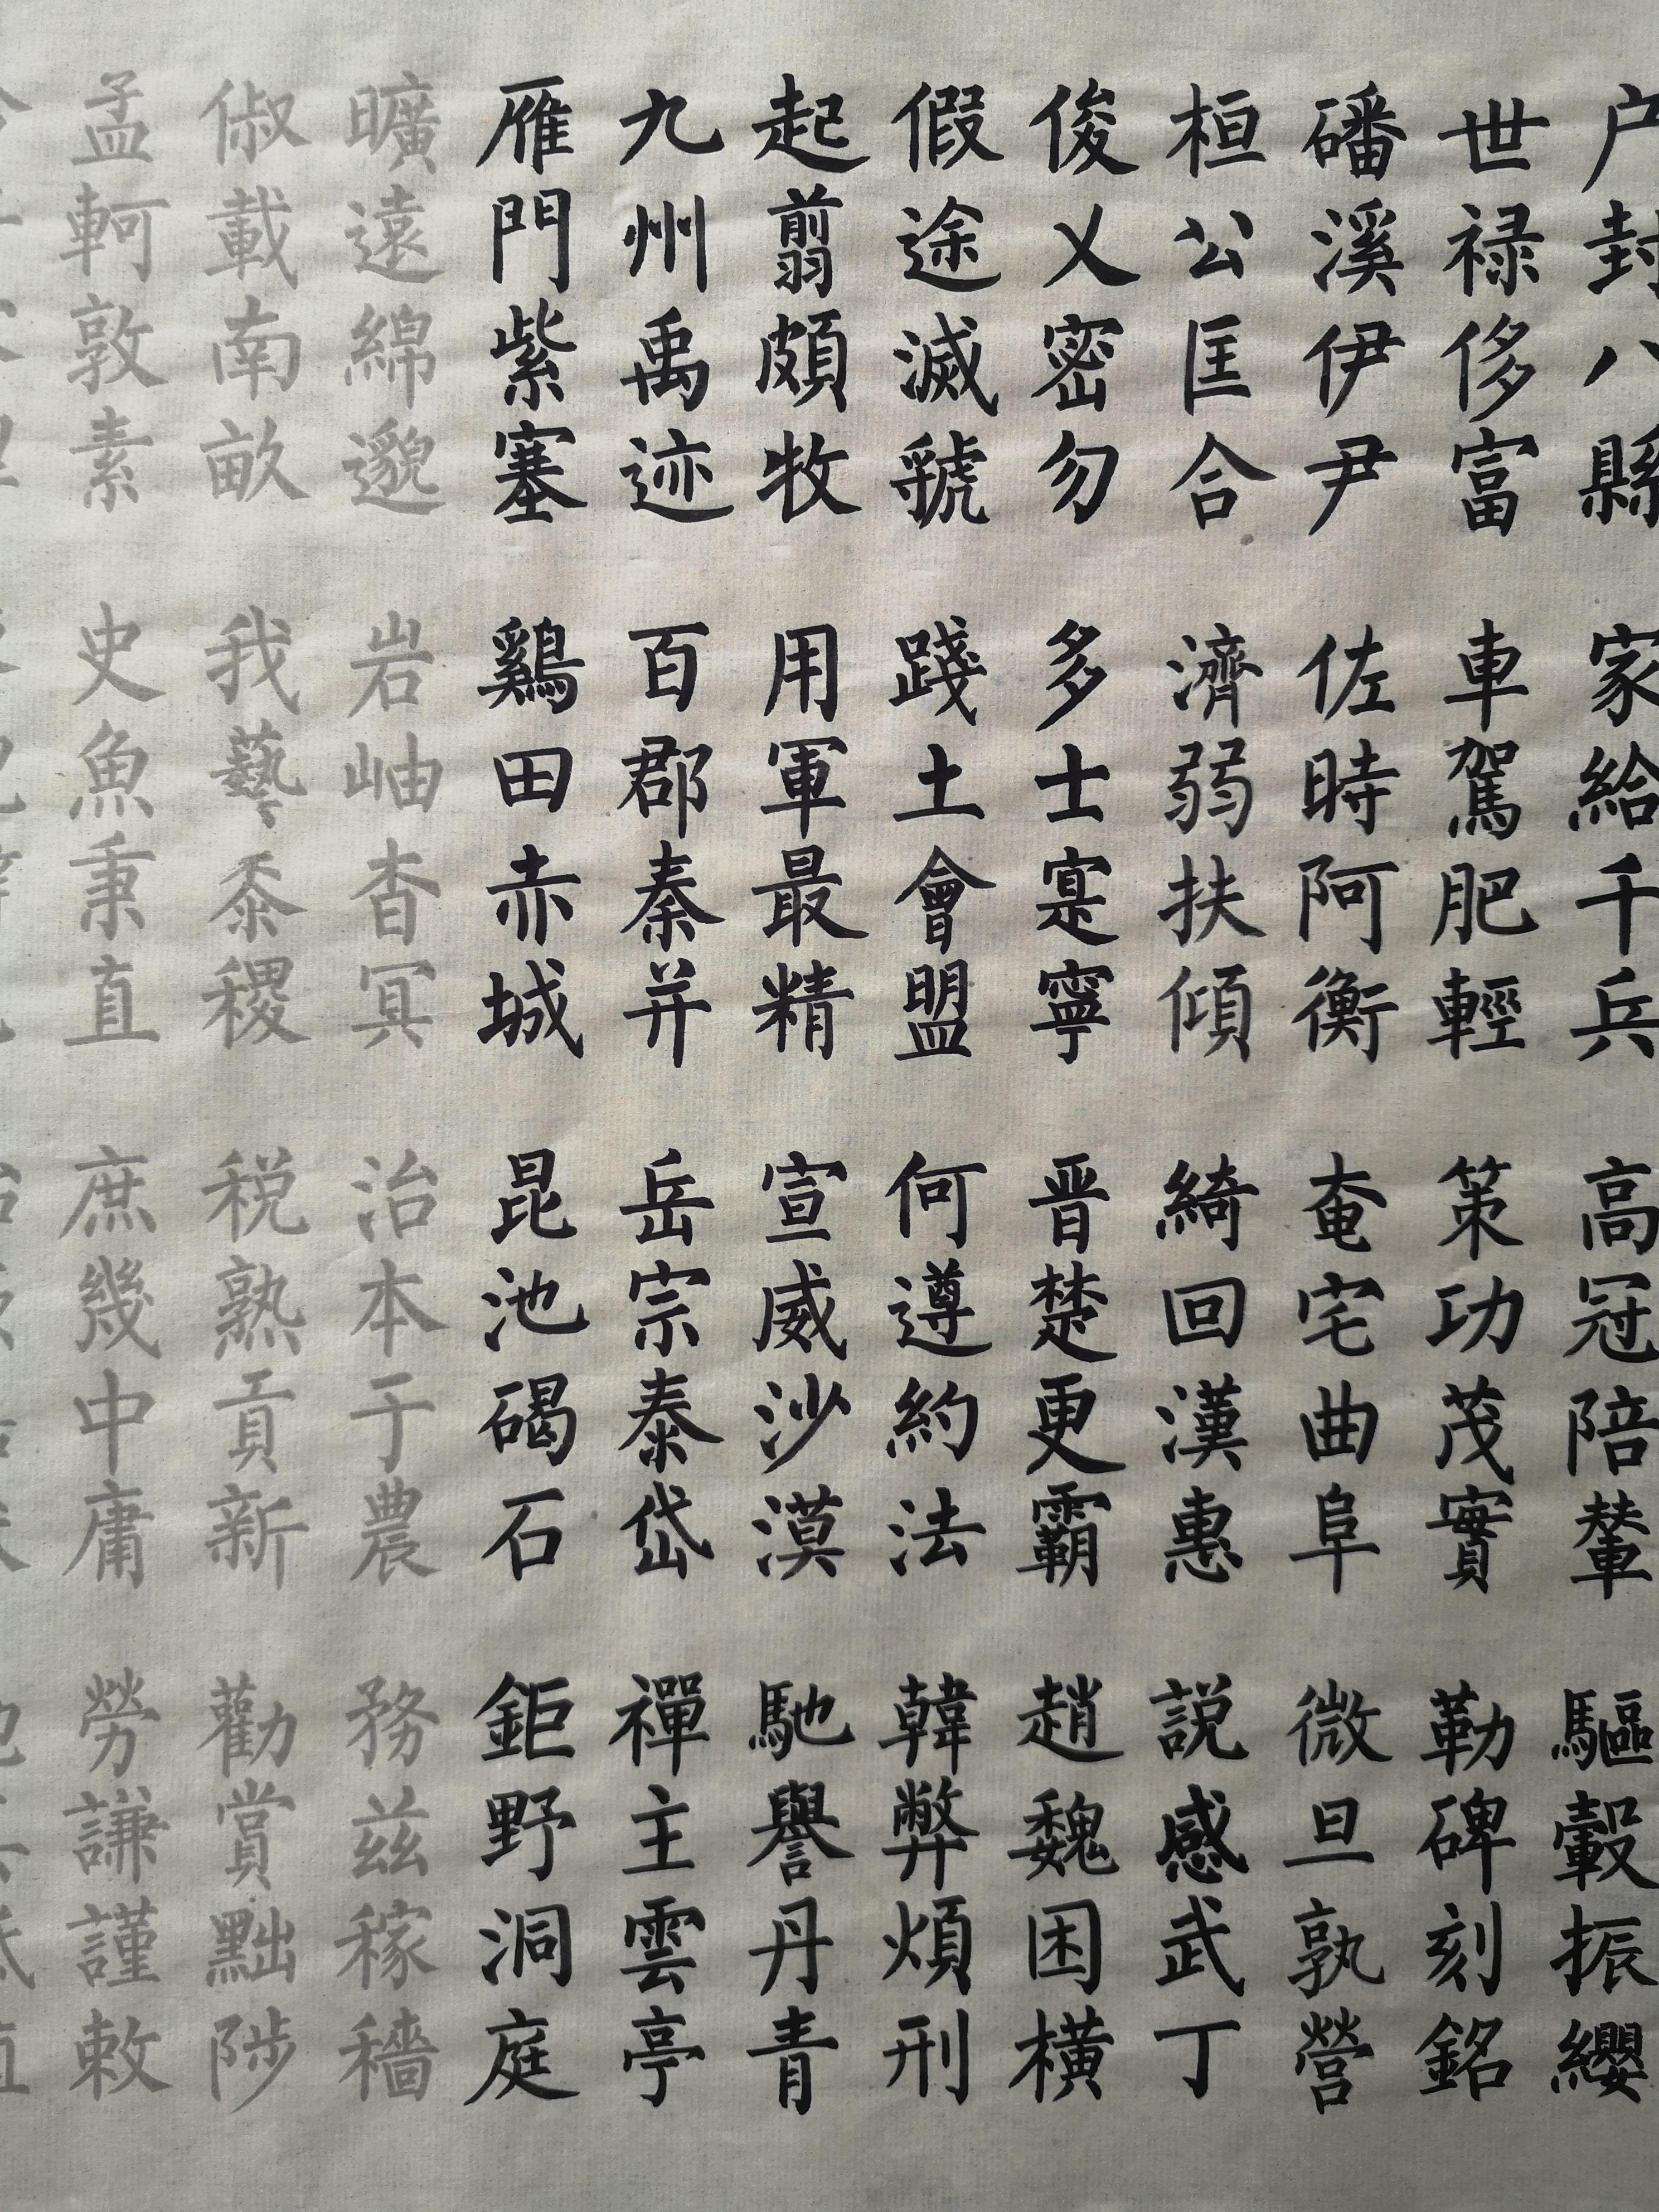 户封八縣 家給千兵 高冠陪輦 驅轂振纓
世禄侈富 車駕肥輕 策功茂實 勒碑刻銘
磻溪伊尹 佐時阿衡 奄宅曲阜 微旦孰營
桓公匡合 濟弱扶傾 綺回漢惠 説感武丁
俊乂密勿 多士寔寧 晋楚更霸 趙魏困横
假途滅虢 踐土會盟 何遵約法 韓弊煩刑
起翦頗牧 用軍最精 宣威沙漠 馳譽丹青
九州禹迹 百郡秦并 岳宗泰岱 禪主雲亭
雁門紫塞 鷄田赤城 昆池碣石 鉅野洞庭
曠遠綿邈 岩岫杳冥 治本于農 務兹稼穡
俶載南畝 我藝黍稷 税熟貢新 勸賞黜陟
孟軻敦素 史魚秉直 庶幾中庸 勞謙謹敕